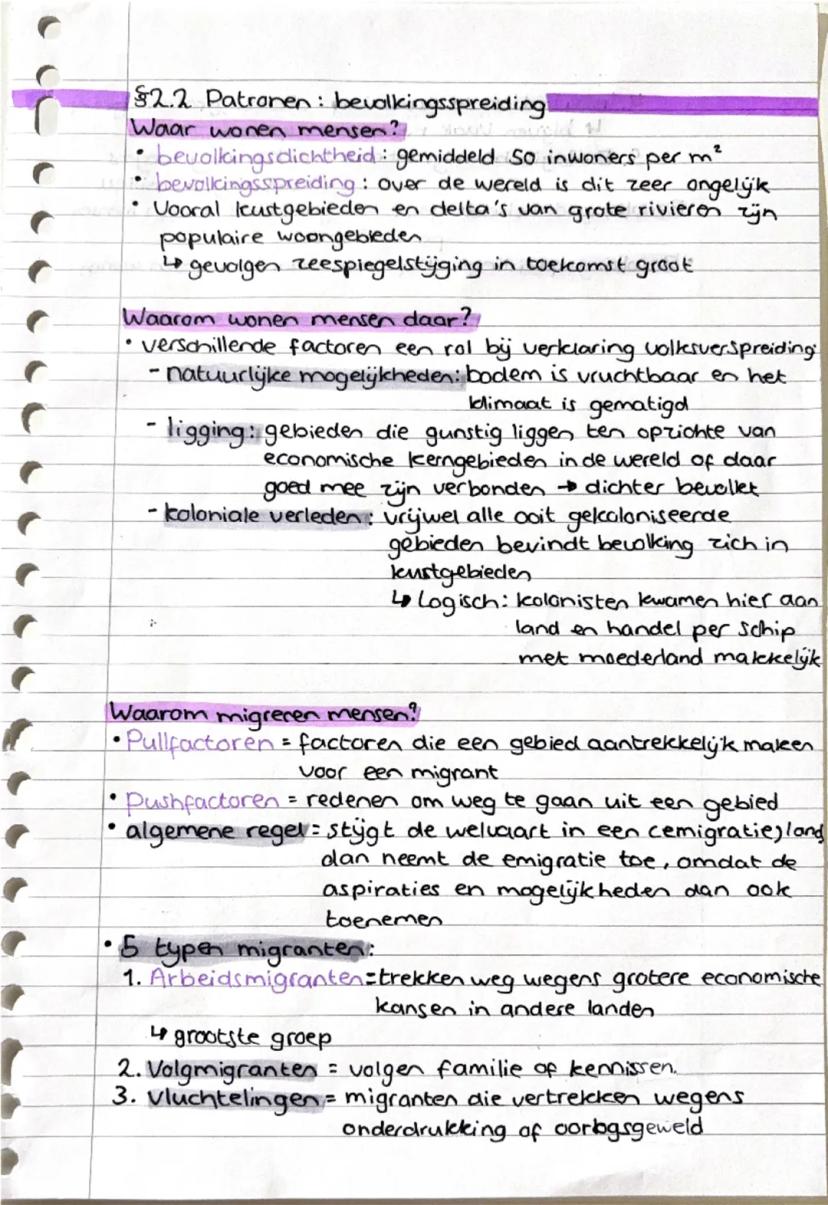 §2.2 Patronen: bevolkingsspreiding
Waar wonen mensen?
• bevolkingsdichtheid: gemiddeld 50 inwoners per m²
• bevolkingsspreiding: over de wereld is dit zeer ongelijk
• Vooral kustgebieden en delta's van grote rivieren zijn
populaire woongebieden
↳ gevolgen zeespiegelstijging in toekomst groot
Waarom wonen mensen daar?
• verschillende factoren een rol bij verklaring volksverspreiding
- natuurlijke mogelijkheden: bodem is vruchtbaar en het
klimaat is gematigd
- ligging: gebieden die gunstig liggen ten opzichte van
economische kerngebieden in de wereld of daar
goed mee zijn verbonden → dichter bevolkt
- koloniale verleden: vrijwel alle ooit gekoloniseerde
gebieden bevindt bevolking zich in
kustgebieden
↳ Logisch: kolonisten kwamen hier aan
land en handel per schip
met moederland makkelijk
Waarom migreren mensen?
• Pullfactoren = factoren die een gebied aantrekkelijk maken
voor een migrant
• Pushfactoren = redenen om weg te gaan uit een gebied
• algemene regel = stijgt de welvaart in een (emigratie)land
dan neemt de emigratie toe, omdat de
aspiraties en mogelijkheden dan ook
toenemen
• 5 typen migranten:
1. Arbeidsmigranten = trekken weg wegens grotere economische
kansen in andere landen
↳ grootste groep
2. Volgmigranten = volgen familie of kennissen.
3. Vluchtelingen = migranten die vertrekken wegens
onderdrukking of oorlogsgeweld